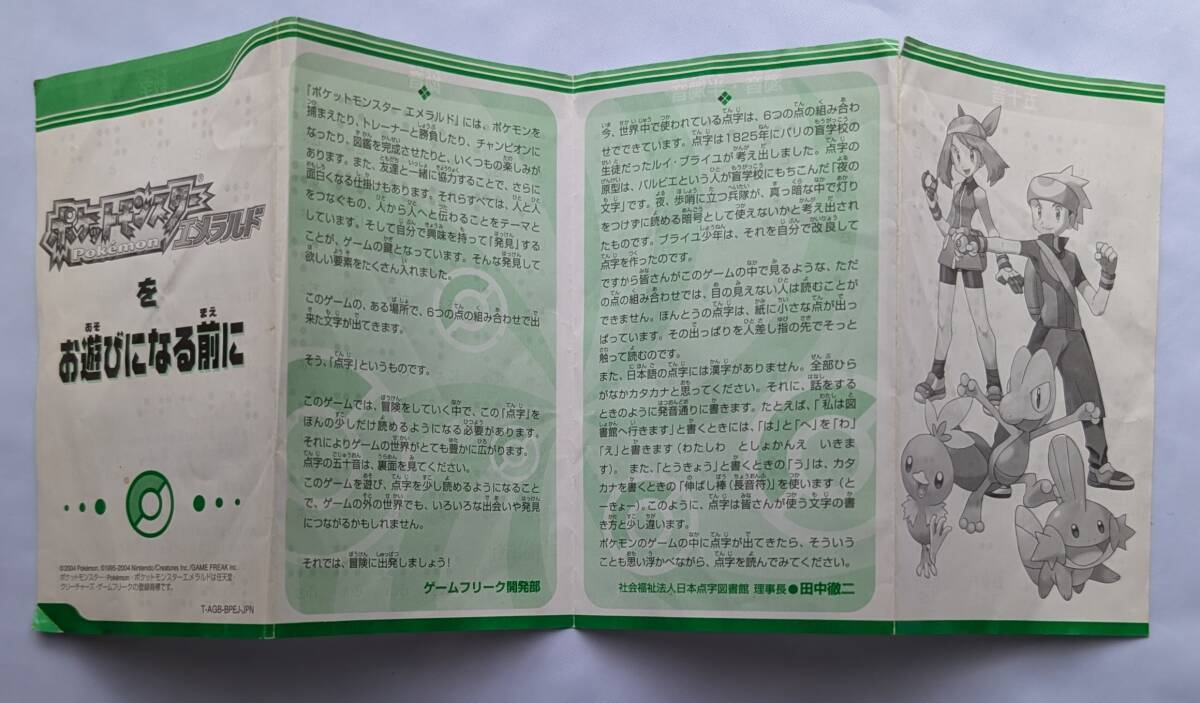 ポケットモンスター
Pokémon
エメラルド
を
お遊びになる前に
©2004 Pokémon. ©1995-2004 Nintendo/Creatures Inc./GAME FREAK inc.
ポケットモンスター・Pokémon・ポケットモンスターエメラルドは任天堂・
クリーチャーズ・ゲームフリークの登録商標です。
T-AGB-BPEJ-JPN
「ポケットモンスター エメラルド」には、ポケモンを
捕まえたり、トレーナーと勝負したり、チャンピオンに
なったり、図鑑を完成させたりと、いくつもの楽しみが
あります。また、友達と一緒に協力することで、さらに
面白くなる仕掛けもあります。それらすべては、人と人
をつなぐもの、人から人へと伝わることをテーマと
しています。そして自分で興味を持って「発見」する
ことが、ゲームの鍵となっています。そんな発見して
欲しい要素をたくさん入れました。
このゲームの、ある場所で、6つの点の組み合わせで出
来た文字が出てきます。
そう、「点字」というものです。
このゲームでは、冒険をしていく中で、この「点字」を
ほんの少しだけ読めるようになる必要があります。
それによりゲームの世界がとても豊かに広がります。
点字の五十音は、裏面を見てください。
このゲームを遊び、点字を少し読めるようになること
で、ゲームの外の世界でも、いろいろな出会いや発見
につながるかもしれません。
それでは、冒険に出発しましょう！
ゲームフリーク開発部
今、世界中で使われている点字は、6つの点の組み合わ
せでできています。点字は1825年にパリの盲学校の
生徒だったルイ・ブライユが考え出しました。点字の
原型は、バルビエという人が盲学校にもちこんだ「夜の
文字」です。夜、歩哨に立つ兵隊が、真っ暗な中で灯り
をつけずに読める暗号として使えないかと考え出され
たものです。ブライユ少年は、それを自分で改良して
点字を作ったのです。
ですから皆さんがこのゲームの中で見るような、ただ
の点の組み合わせでは、目の見えない人は読むことが
できません。ほんとうの点字は、紙に小さな点が出っ
ぱっています。その出っぱりを人差し指の先でそっと
触って読むのです。
また、日本語の点字には漢字がありません。全部ひら
がなかカタカナと思ってください。それに、話をする
ときのように発音通りに書きます。たとえば、「私は図
書館へ行きます」と書くときには、「は」と「へ」を「わ」
「え」と書きます（わたしわ　としょかんえ　いきま
す）。また、「とうきょう」と書くときの「う」は、カタ
カナを書くときの「伸ばし棒（長音符）」を使います（と
ーきょー）。このように、点字は皆さんが使う文字の書
き方と少し違います。
ポケモンのゲームの中に点字が出てきたら、そういう
ことも思い浮かべながら、点字を読んでみてください。
社会福祉法人日本点字図書館 理事長●田中徹二